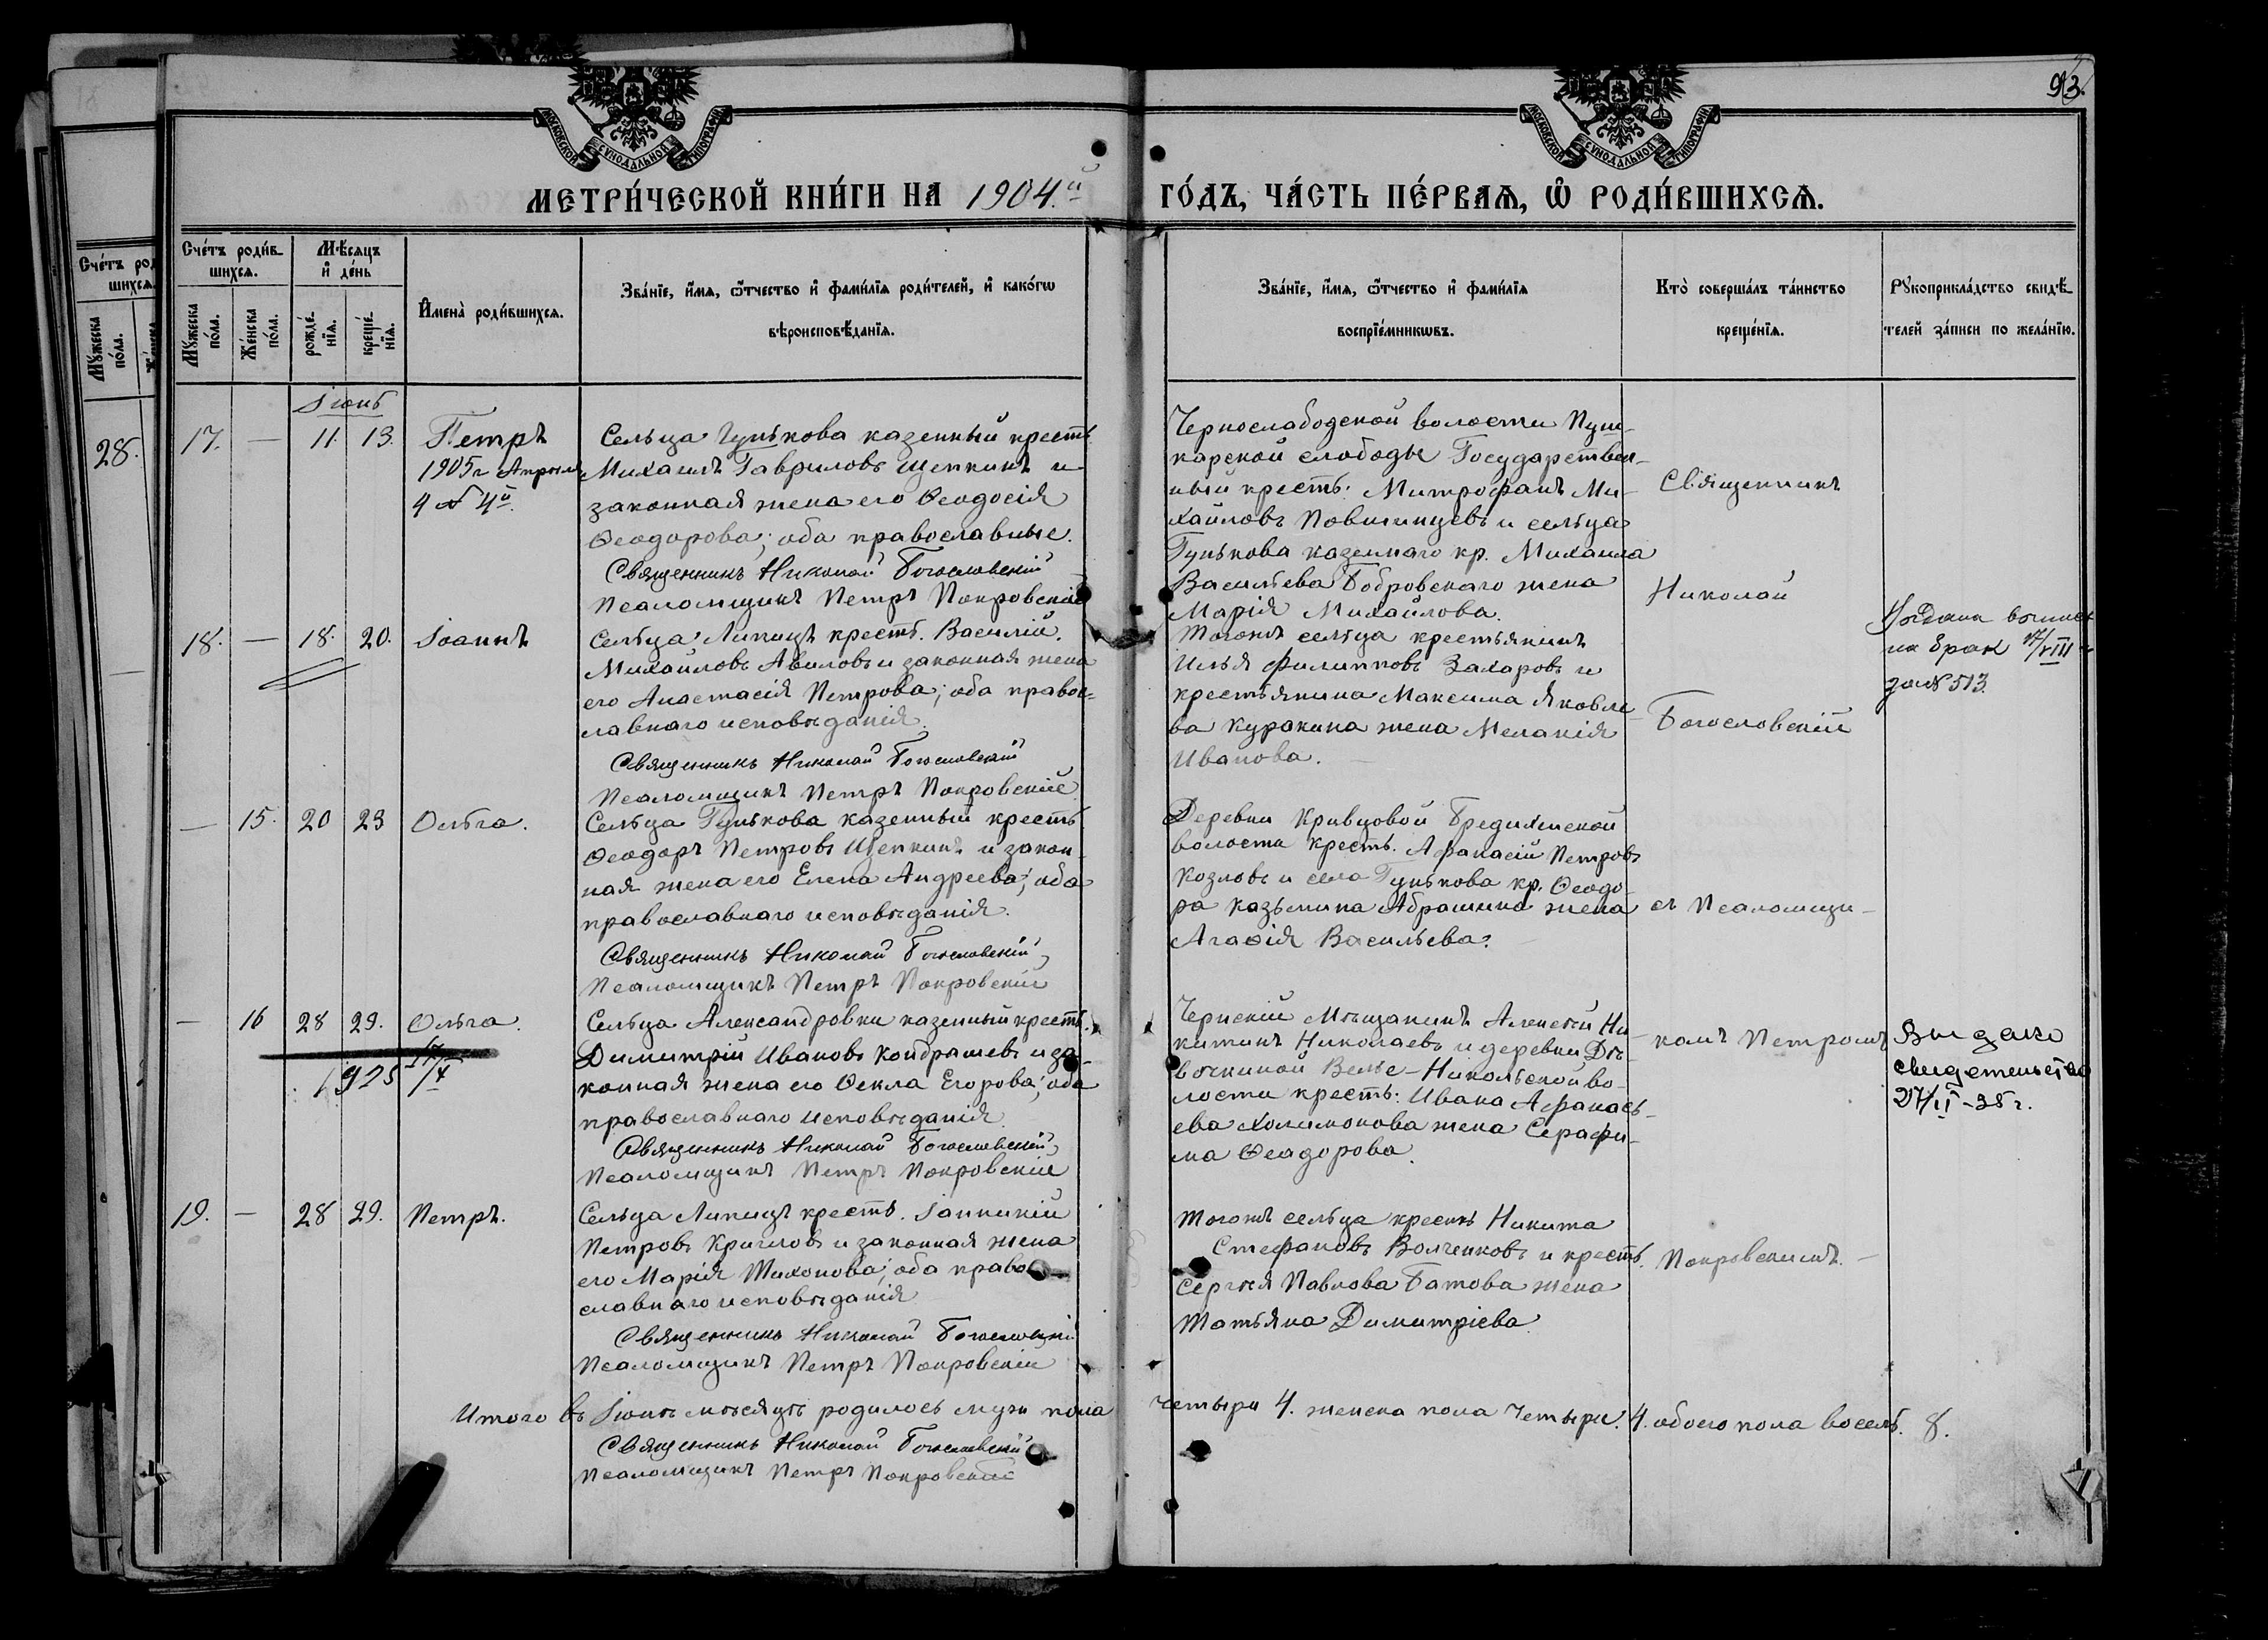 93.
МОСКОВСКОЙ СѴНОДАЛЬНОЙ ТИПОГРАФІИ
МОСКОВСКОЙ СѴНОДАЛЬНОЙ ТИПОГРАФІИ
МЕТРИ́ЧЕСКОЙ КНИ́ГИ НА 1904.й ГО́ДЪ, ЧА́СТЬ ПЕ́РВАѦ, Ѡ РОДИ́ВШИХСѦ.
Сче́тъ роди́в-
шихсѧ.
Мꙋ́жеска
по́ла.
Же́нска
по́ла.
Мѣ́сѧцъ
и҆ де́нь
рожде́-
нїѧ.
креще́-
нїѧ.
И҆мена̀ роди́вшихсѧ.
Зва́нїе, и҆́мѧ, ѻ҆́тчество и҆ фами́лїѧ роди́телей, и҆ како́гѡ
вѣроисповѣ́данїѧ.
Зва́нїе, и҆́мѧ, ѻ҆́тчество и҆ фами́лїѧ
воспрїе́мникѡвъ.
Кто̀ соверша́лъ та́инство
креще́нїѧ.
Рꙋкоприкла́дство свидѣ́-
телей за́писи по жела́нїю.
28.
Іюнь
17. — 11. 13. Петръ
1905 г Апреля
4 № 4й.
Сельца Гунькова казенный кресть.
Михаилъ Гавриловъ Щепкинъ и
законная жена его Ѳеодосія
Ѳеодорова; оба православные.
Священникъ Николай Богословскій
Псаломщикъ Петръ Покровскій
Чернослободской волости Пуш-
карской слободы Государствен-
ный кресть. Митрофанъ Ми-
хайловъ и сельца
Гунькова казеннаго кр. Михаила
Васильева Бобровскаго жена
Марія Михайлова.
Священникъ
Николай
18. — 18. 20. Іоаннъ
Сельца Липицъ кресть. Василій
Михайловъ Авиловъ и законная жена
его Анастасія Петрова; оба правос-
лавнаго исповѣданія.
Священникъ Николай Богословскій
Псаломщикъ Петръ Покровскій
Тогоже сельца крестьянинъ
Илья Филипповъ Захаровъ и
крестьянина Максима Яковле-
ва Куракина жена Меланія
Иванова.
Богословскій
на бракъ 17/VIII
за № 513.
— 15. 20 23 Ольга.
Сельца Гунькова казенный кресть
Ѳеодоръ Петровъ Щепкинъ и закон-
ная жена его Елена Андреева; оба
православнаго исповѣданія.
Священникъ Николай Богословскій
Псаломщикъ Петръ Покровскій
Деревни Кривцовой Бредихинской
волости кресть. Аѳанасій Петровъ
Козловъ и села Гунькова кр. Ѳеодо-
ра Казьмина Абрашина жена
Агафія Васильева.
съ Псаломщи-
— 16 28 29. Ольга.
1925 17/X
Сельца Александровки казенный кресть.
Димитрій Ивановъ Кондрашевъ и за-
конная жена его Ѳекла Егорова; оба
православнаго исповѣданія.
Священникъ Николай Богословскій
Псаломщикъ Петръ Покровскій
Чернскій Мѣщанинъ Алексѣй Ни-
китинъ Николаевъ и деревни Дѣ-
вочкиной Велье-Никольской во-
лости кресть. Ивана Афанась-
ева Холимонова жена Серафи-
ма Ѳеодорова.
комъ Петромъ
Выдано
свидетельство
27/II-35 г.
19. — 28 29. Петръ.
Сельца Липицъ кресть. Іанникій
Петровъ Кругловъ и законная жена
его Марія Тихонова; оба право-
славнаго исповѣданія
Священникъ Николай Богословскій
Псаломщикъ Петръ Покровскій
Тогоже сельца крестьянъ Никита
Стефановъ Волченковъ и кресть.
Сергѣя Павлова Батова жена
Татьяна Димитріева.
Покровскимъ.
Итого въ Іюнѣ мѣсяцѣ родилось муж. пола четыри 4. женска пола четыри. 4. обоего пола восемь. 8.
Священникъ Николай Богословскій
Псаломщикъ Петръ Покровскій